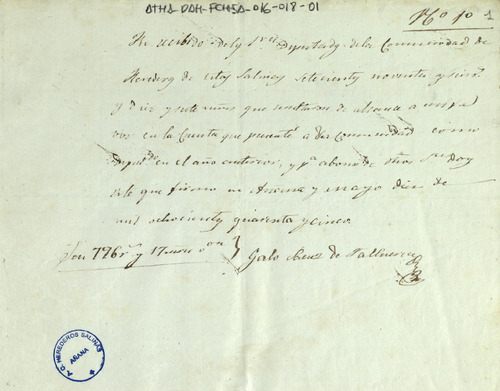 ATHA-DAH-FCHSA-016-018-01
Nº 10 1
He recibido de los Sres Diputados de la Comunidad de
Herederos de estas Salinas setecientos noventa y
y diez y siete mrs que resultaron de alcance a mi fa
vor en la Cuenta que presenté a Dha comunidad como
Diputado en el año anterior, y pª abono de dhos Sres doy
este que firmo en Añana y mayo diez de
mil ochocientos quarenta y cinco
Son 796 rs y 17 mrs von
Galo Saenz de
A.C. HEREDEROS SALINAS
AÑANA